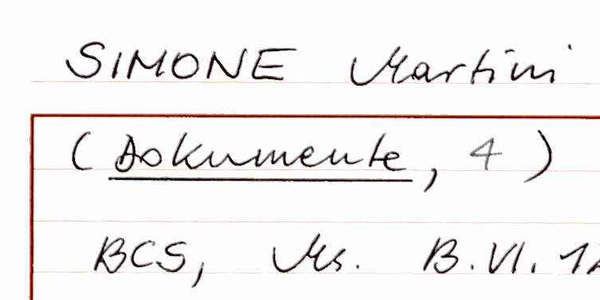 SIMONE Martini
(Dokumente, 4)
BCS, Ms. B.VI.